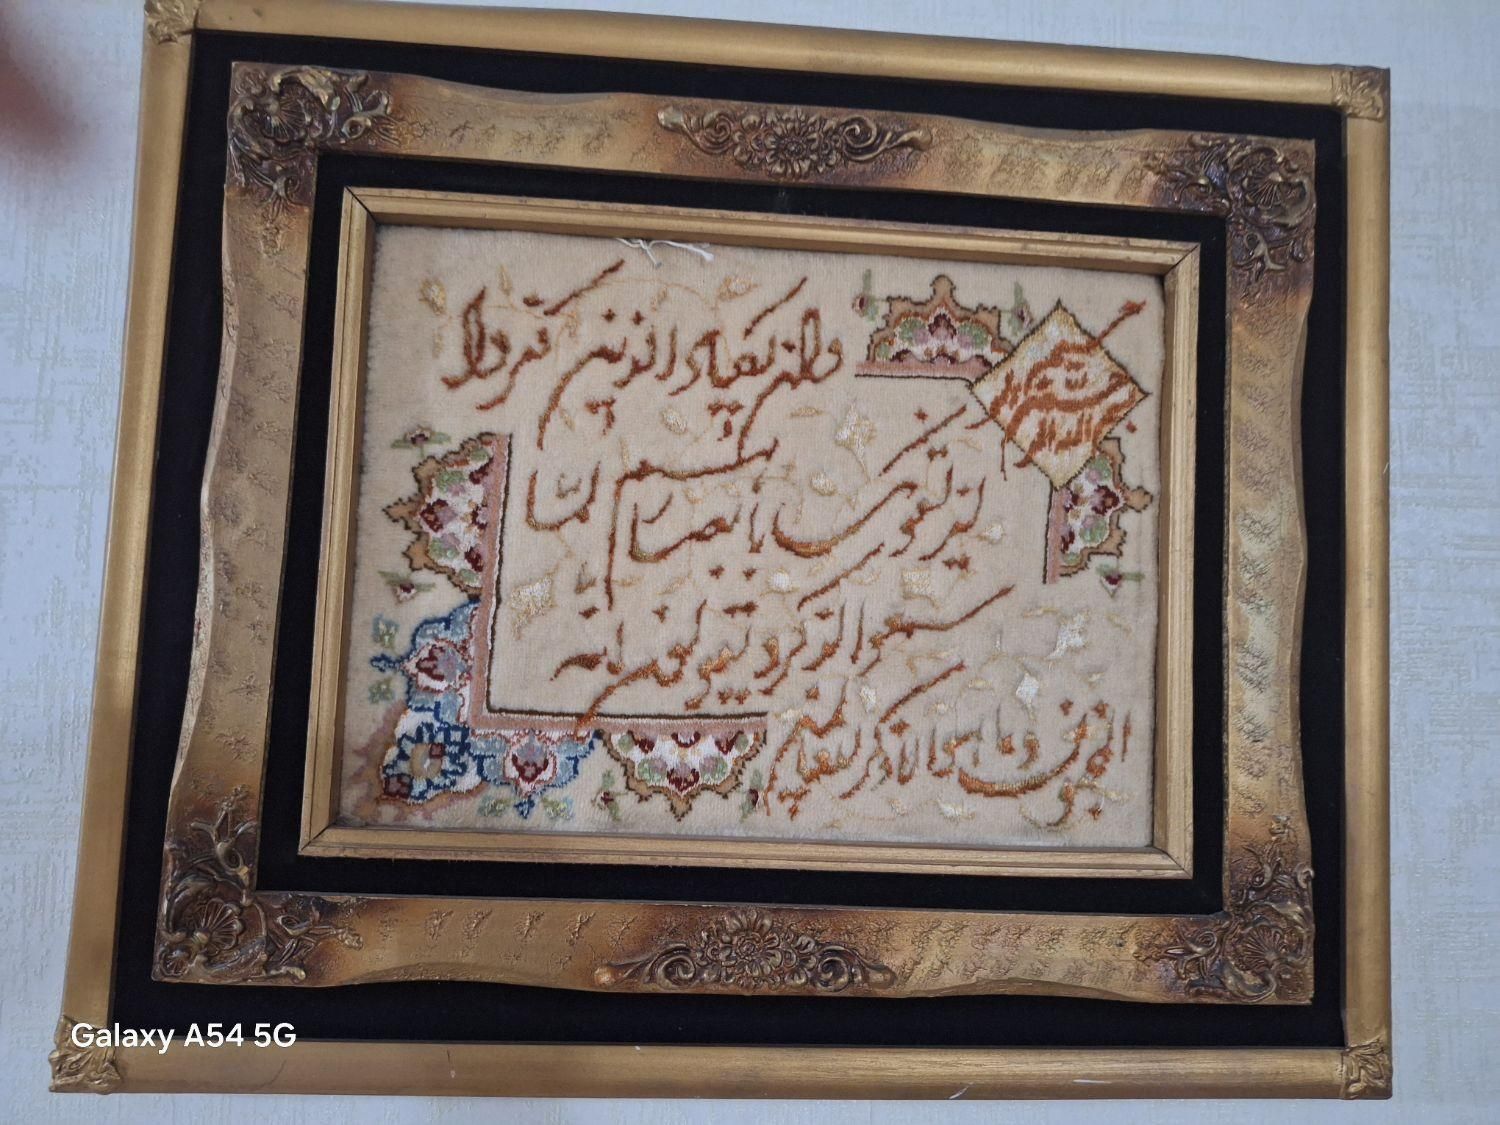 بسم الله الرحمن الرحیم
وان یکاد الذین کفروا
لیزلقونک بابصارهم لما
سمعوا الذکر و یقولون انه
لمجنون و ما هو الا ذکر للعالمین
Galaxy A54 5G